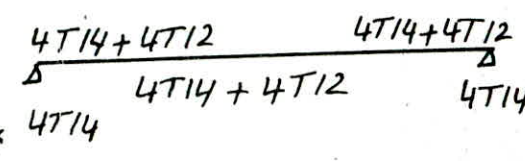 4T14+4T12 4T14+4T12
4T14 + 4T12
4T14 4T14